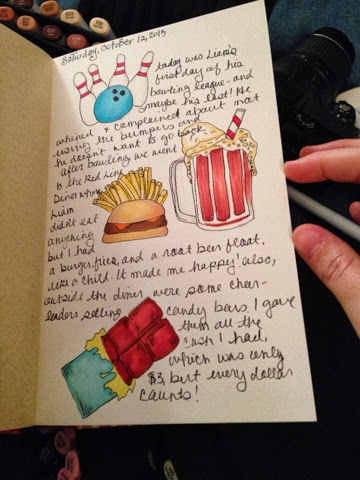 Saturday, October 12, 2013
today was Liam's
first day of his
bowling league - and
maybe his last! He
whined + complained about not
using the bumpers and
he doesn't want to go back.
after bowling, we went
to the Red Line
Diner where
Liam
didn't eat
anything
but I had
a burger, fries, and a root beer float.
like a child. It made me happy! also,
outside the diner were some cheer-
leaders selling
candy bars. I gave
them all the
cash I had,
which was only
$3, but every dollar
counts!